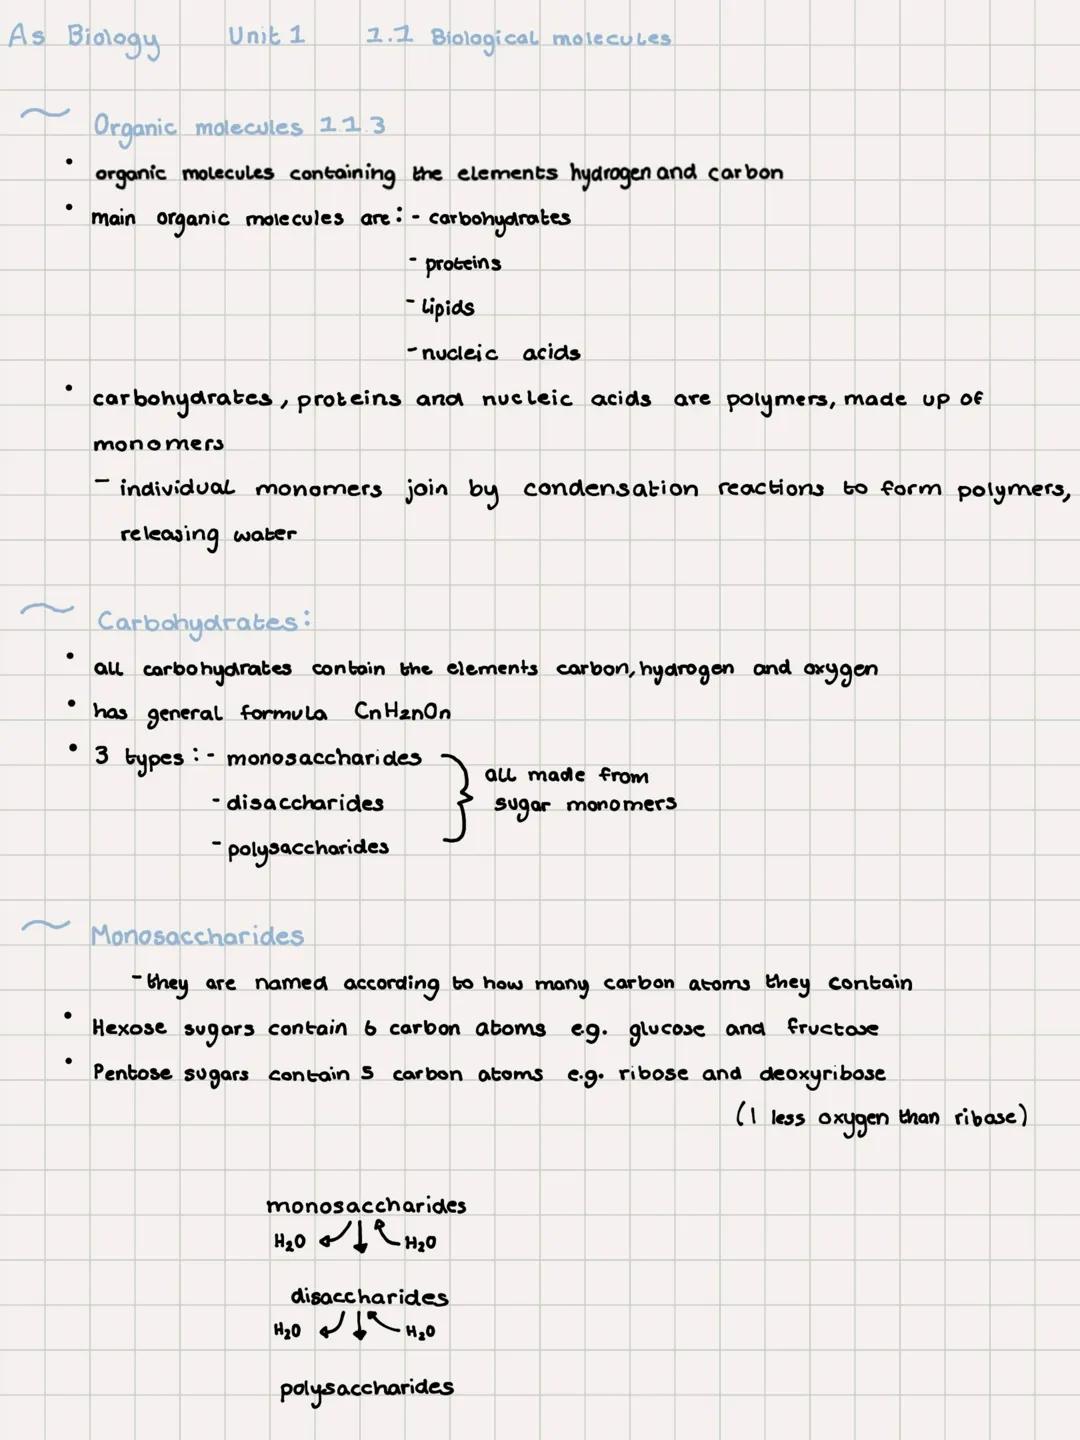 As Biology Unit 1 1.1 Biological molecules
~ Organic molecules 1.1.3
• organic molecules containing the elements hydrogen and carbon
• main organic molecules are: - carbohydrates
- proteins
- lipids
- nucleic acids
• carbohydrates, proteins and nucleic acids are polymers, made up of
monomers
- individual monomers join by condensation reactions to form polymers,
releasing water
~ Carbohydrates:
• all carbohydrates contain the elements carbon, hydrogen and oxygen
• has general formula CnH2nOn
• 3 types: - monosaccharides
- disaccharides
- polysaccharides
} all made from
sugar monomers
~ Monosaccharides
- they are named according to how many carbon atoms they contain
• Hexose sugars contain 6 carbon atoms e.g. glucose and fructose
• Pentose sugars contain 5 carbon atoms e.g. ribose and deoxyribose
(1 less oxygen than ribose)
monosaccharides
H₂O H₂O
disaccharides
H₂O H₂O
polysaccharides